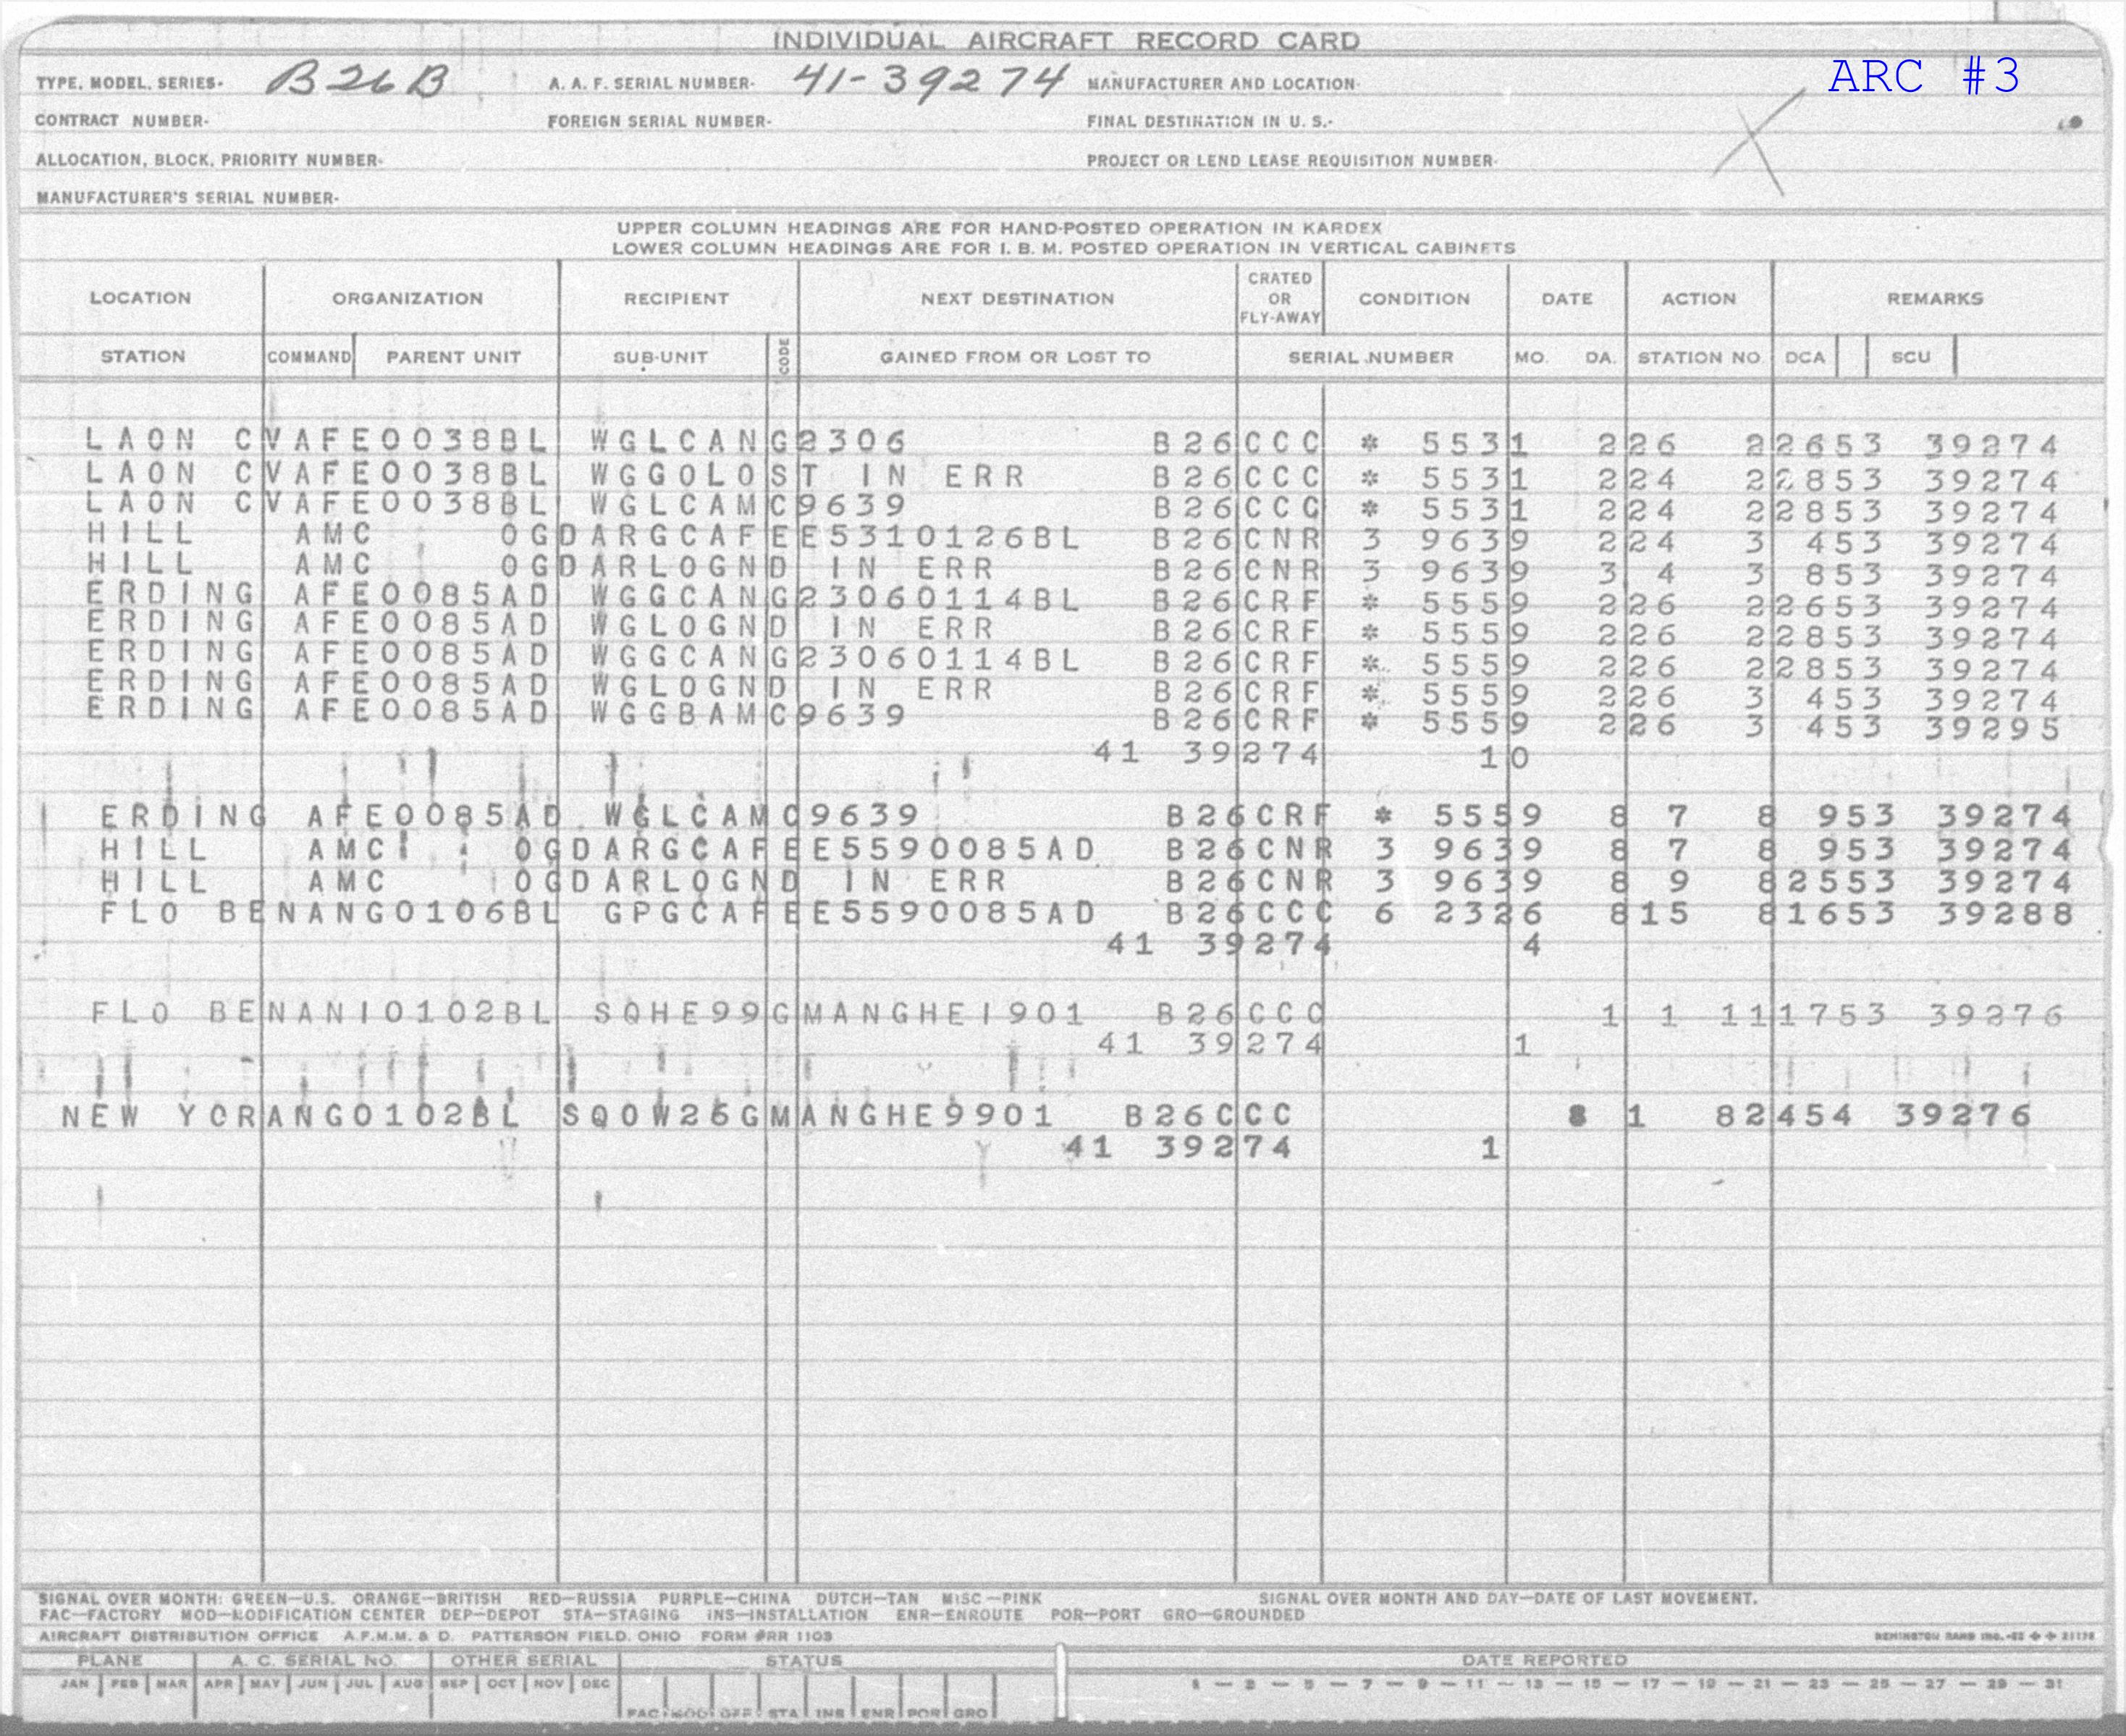 INDIVIDUAL AIRCRAFT RECORD CARD
ARC #3
TYPE, MODEL, SERIES- B26B A. A. F. SERIAL NUMBER- 41-39274 MANUFACTURER AND LOCATION-
CONTRACT NUMBER- FOREIGN SERIAL NUMBER- FINAL DESTINATION IN U. S.-
ALLOCATION, BLOCK, PRIORITY NUMBER- PROJECT OR LEND LEASE REQUISITION NUMBER-
MANUFACTURER'S SERIAL NUMBER-
UPPER COLUMN HEADINGS ARE FOR HAND-POSTED OPERATION IN KARDEX
LOWER COLUMN HEADINGS ARE FOR I. B. M. POSTED OPERATION IN VERTICAL CABINETS
LOCATION ORGANIZATION RECIPIENT NEXT DESTINATION CRATED OR FLY-AWAY CONDITION DATE ACTION REMARKS
STATION COMMAND PARENT UNIT SUB-UNIT CODE GAINED FROM OR LOST TO SERIAL NUMBER MO. DA. STATION NO. DCA SCU
LAON CVAFE0038BL WGLCANG2306 B26CCC * 5531 226 22653 39274
LAON CVAFE0038BL WGGOLOST IN ERR B26CCC * 5531 224 22853 39274
LAON CVAFE0038BL WGLCAMC9639 B26CCC * 5531 224 22853 39274
HILL AMC OGDARGCAFEE5310126BL B26CNR 3 9639 224 3 453 39274
HILL AMC OGDARLOGND IN ERR B26CNR 3 9639 3 4 3 853 39274
ERDING AFE0085AD WGGCANG23060114BL B26CRF * 5559 226 22653 39274
ERDING AFE0085AD WGLOGND IN ERR B26CRF * 5559 226 22853 39274
ERDING AFE0085AD WGGCANG23060114BL B26CRF * 5559 226 22853 39274
ERDING AFE0085AD WGLOGND IN ERR B26CRF * 5559 226 3 453 39274
ERDING AFE0085AD WGGBAMC9639 B26CRF * 5559 226 3 453 39295
41 39274 10
ERDING AFE0085AD WGLCAMC9639 B26CRF * 5559 8 7 8 953 39274
HILL AMC OGDARGCAFEE5590085AD B26CNR 3 9639 8 7 8 953 39274
HILL AMC OGDARLOGND IN ERR B26CNR 3 9639 8 9 82553 39274
FLO BENANG0106BL GPGCAFEE5590085AD B26CCC 6 2326 815 81653 39288
41 39274 4
FLO BENANI0102BL SQHE99GMANGHE1901 B26CCC 1 1 111753 39276
41 39274 1
NEW YORANG0102BL SQOW26GMANGHE9901 B26CCC 8 1 82454 39276
41 39274 1
SIGNAL OVER MONTH: GREEN—U.S. ORANGE—BRITISH RED—RUSSIA PURPLE—CHINA DUTCH—TAN MISC—PINK SIGNAL OVER MONTH AND DAY—DATE OF LAST MOVEMENT.
FAC—FACTORY MOD—MODIFICATION CENTER DEP—DEPOT STA—STAGING INS—INSTALLATION ENR—ENROUTE POR—PORT GRO—GROUNDED
AIRCRAFT DISTRIBUTION OFFICE A.F.M.M. & D. PATTERSON FIELD, OHIO FORM #RR 1103 REMINGTON RAND INC.
PLANE A. C. SERIAL NO. OTHER SERIAL STATUS DATE REPORTED
JAN FEB MAR APR MAY JUN JUL AUG SEP OCT NOV DEC 1 — 3 — 5 — 7 — 9 — 11 — 13 — 15 — 17 — 19 — 21 — 23 — 25 — 27 — 29 — 31
FAC MOD DEP STA INS ENR POR GRO